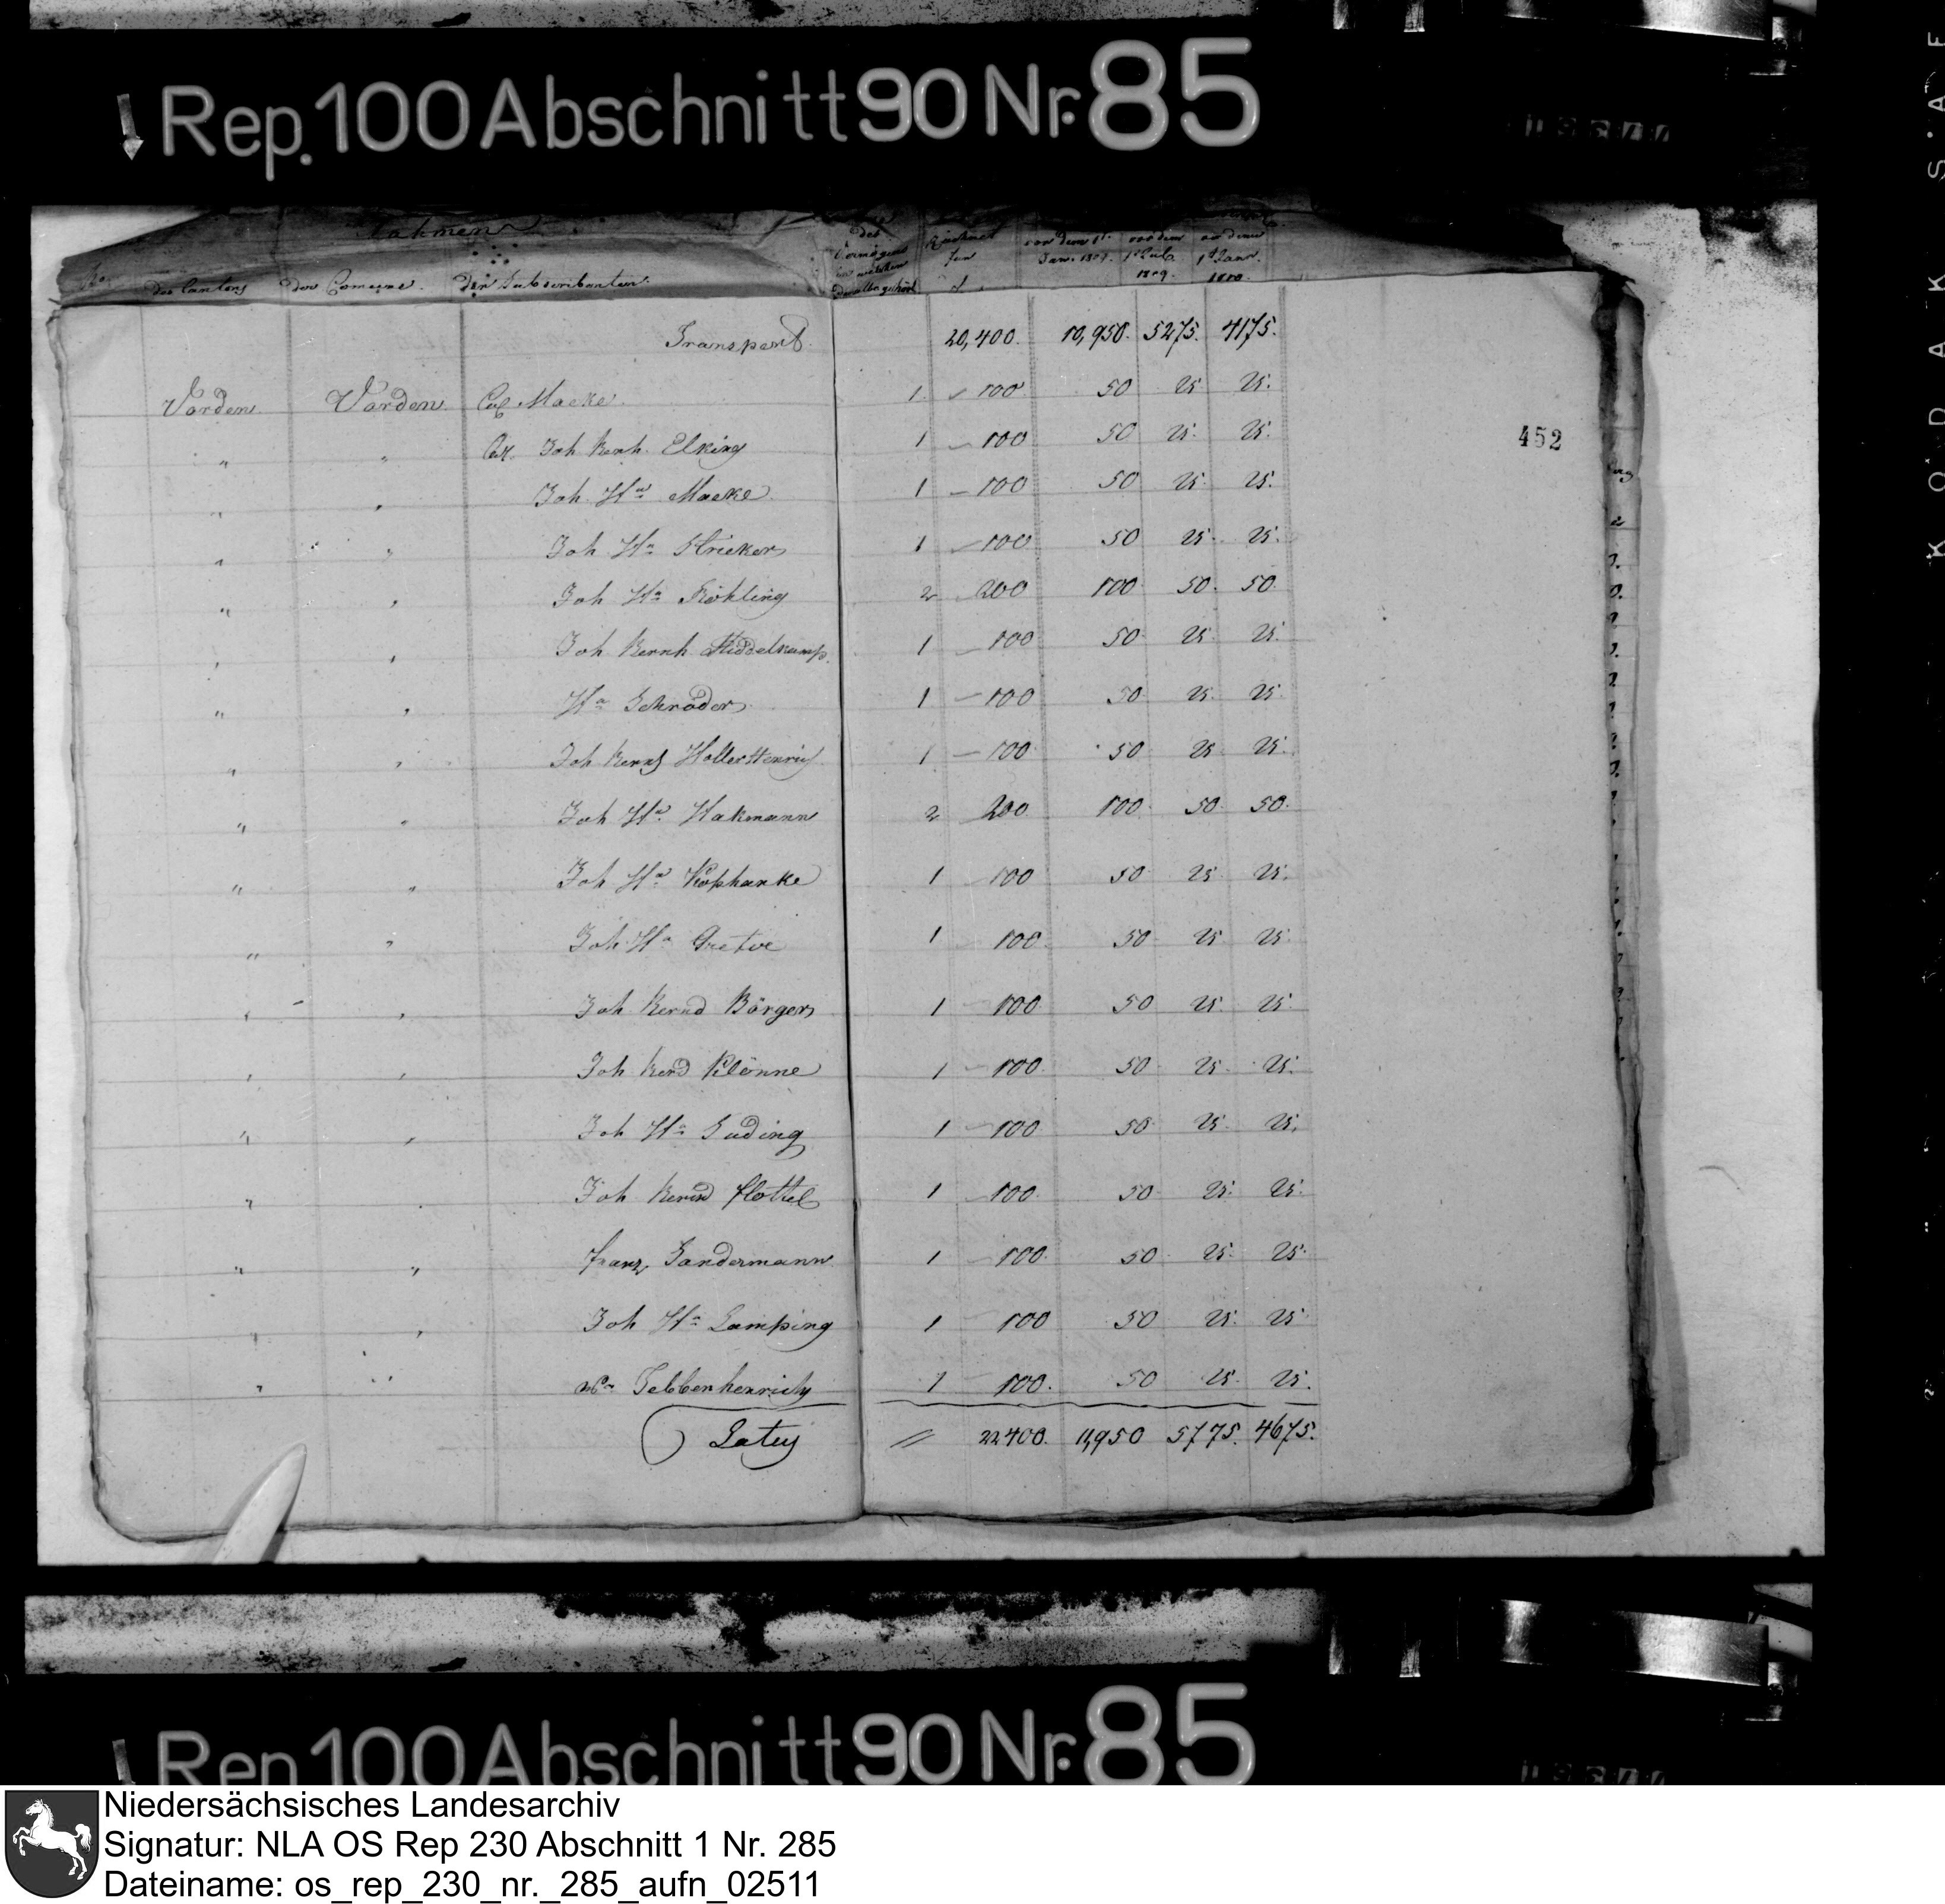 Rep. 100 Abschnitt 90 Nr. 85
Nahmen
des Cantons der Comeine. Der Subscribenten. der Vermögens zu welchen derselbe gehört für vor dem 1t. Jan. 1809. vor dem 1t Juli 1809. vor dem 1t Janr. 1810.
Transport 20,400. 10,950. 5275. 4175.
Vörden Vörden Col Macke 1 100 50 25 25.
" " Col. Joh Bernh. Elking 1 100 50 25. 25.
" " Joh. Hn Macke 1 100 50 25. 25.
" " Joh Hn Stricker 1 100 50 25. 25.
" " Joh Hn Röhling 2 200 100 50. 50.
" " Joh Bernh Middelkamp. 1 100 50 25. 25.
" " Hn Schröder 1 100 50 25. 25.
" " Joh Bernh 1 100 50 25. 25.
" " Joh Hn Hakmann 2 200 100 50. 50.
" " Joh Hn Kophanke 1 100 50 25. 25.
" " Joh Hn Gretoe 1 100 50 25 25.
" " Joh Bernd Börger 1 100 50 25. 25.
" " Joh Bernd Klönne 1 100 50 25. 25.
" " Joh Hn Suding 1 100 50 25. 25.
" " Joh Bernd flottel 1 100 50 25. 25.
" " franz Sandermann 1 100 50 25. 25.
" " Joh Hn Lamping 1 100 50 25. 25.
" " Tebbenhenrich 1 100. 50 25. 25.
Latus 22400. 11,950 5775. 4675.
452
KODAK SAFE
Rep 100 Abschnitt 90 Nr. 85
Niedersächsisches Landesarchiv
Signatur: NLA OS Rep 230 Abschnitt 1 Nr. 285
Dateiname: os_rep_230_nr._285_aufn_02511